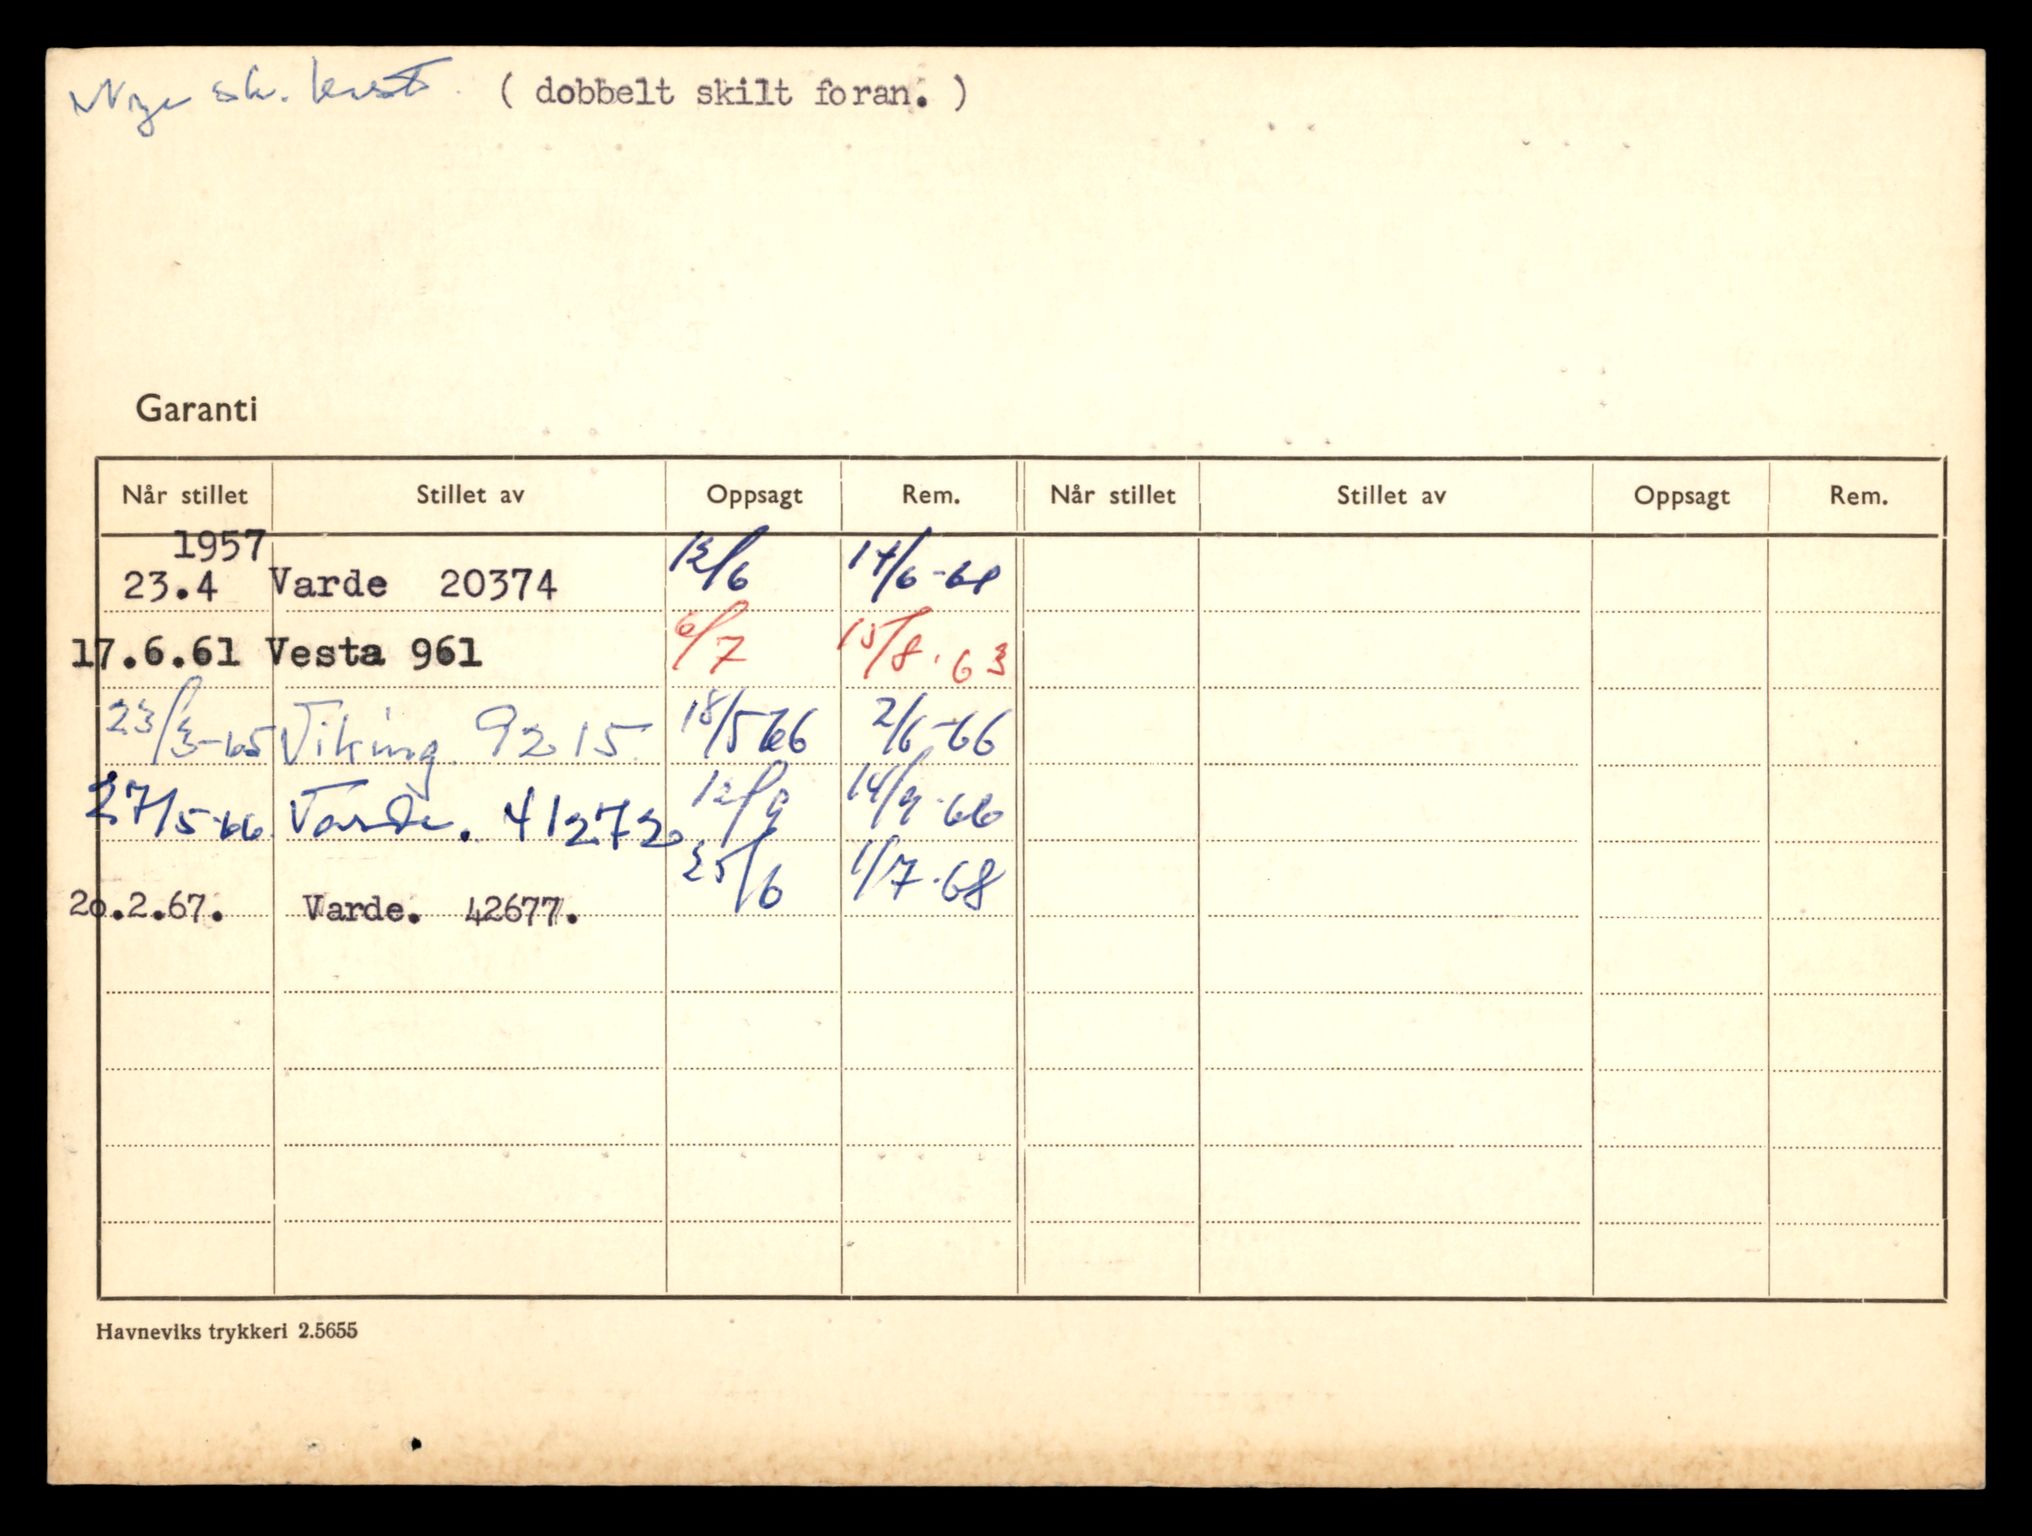 Nye sk. ( dobbelt skilt foran. )
Garanti
Når stillet Stillet av Oppsagt Rem. Når stillet Stillet av Oppsagt Rem.
1957
23.4 Varde 20374 12/6 14/6-61
17.6.61 Vesta 961 6/7 15/8.63
23/3-65 Viking 9215 18/5 66 2/6-66
27/5-66 Varde. 41272 12/9 14/9-66
20.2.67. Varde. 42677. 25/6 1/7-68
Havneviks trykkeri 2.5655